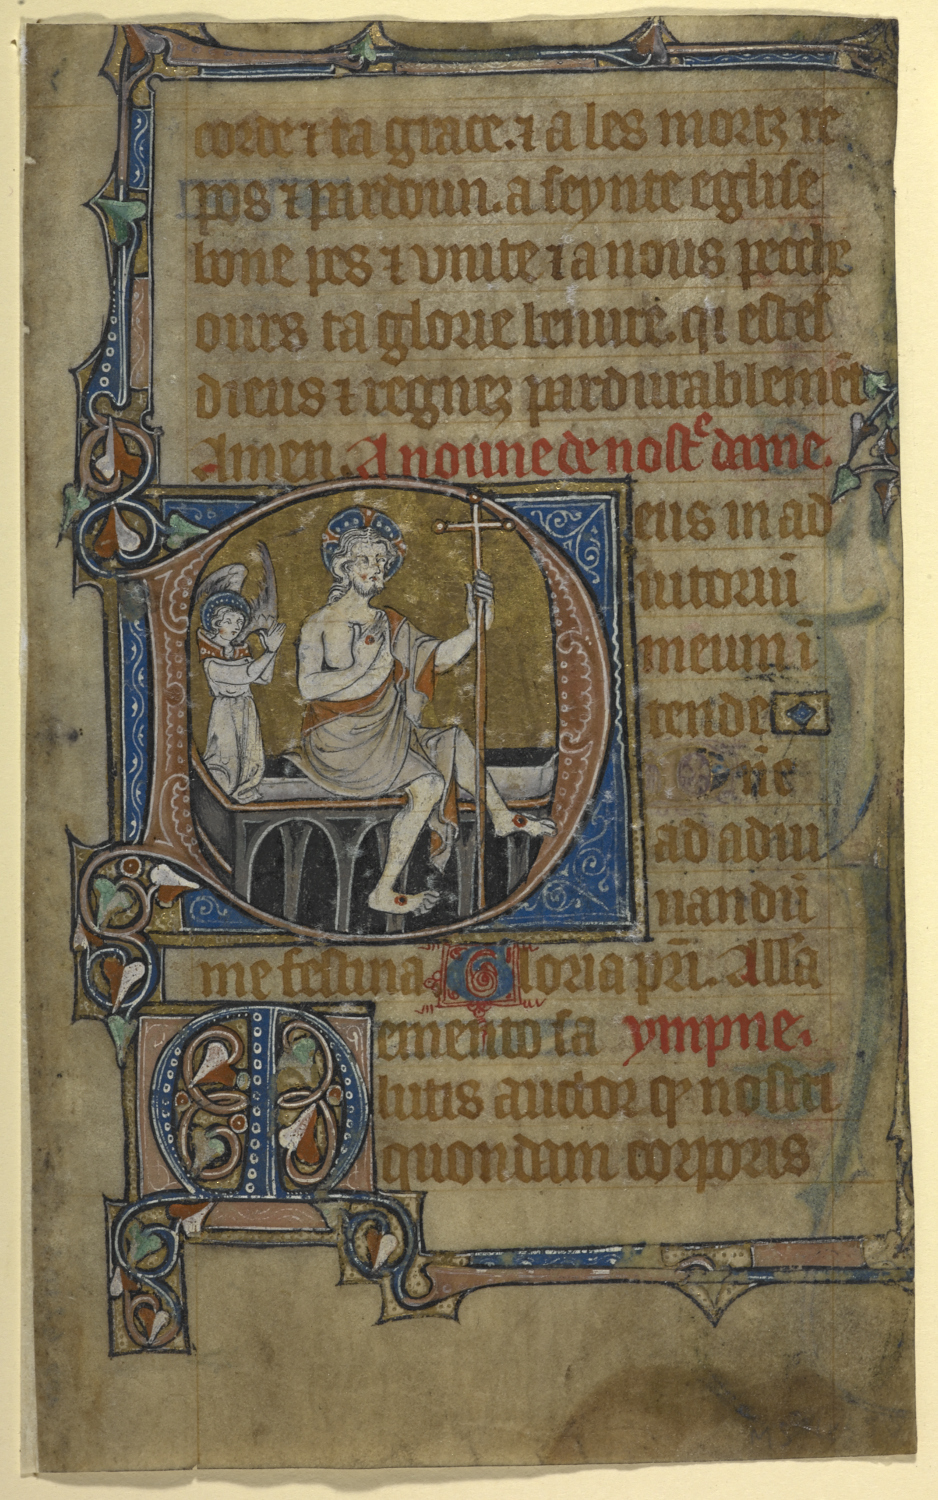 corde ⁊ ta grace. ⁊ a les mortz re
pos ⁊ pardoun. a seynte eglise
bone pes ⁊ vnite ⁊ a nous pecche
ours ta glorie benure. qi estes
dieus ⁊ regnez pardurablemẽt
Amen. A noune de nostᵉ dame.
Deus in ad
iutoriũ
meum ĩ
tende
ñe
ad adiu
uandũ
me festina Gloria pr̃i. Allã
Memento sa ympne.
lutis auctor qͥ nostri
quondam corporis